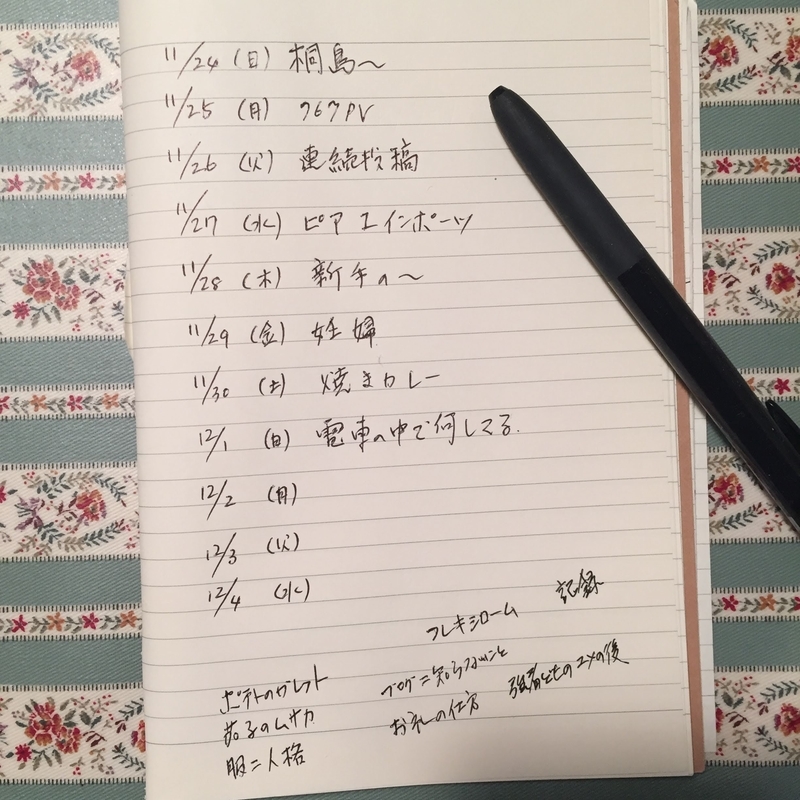 11/24 (日) 桐島〜
11/25 (月) 767PV
11/26 (火) 連続投稿
11/27 (水) ピアエインポーツ
11/28 (木) 新手の〜
11/29 (金) 妊婦
11/30 (土) 焼きカレー
12/1 (日) 電車の中で何してる.
12/2 (月)
12/3 (火)
12/4 (水)
記録
フレキシローム
ポテトのガレット
ブログ=知らないこと
強者どものユメの後
茄子のムサカ
お礼の仕方
服=人格